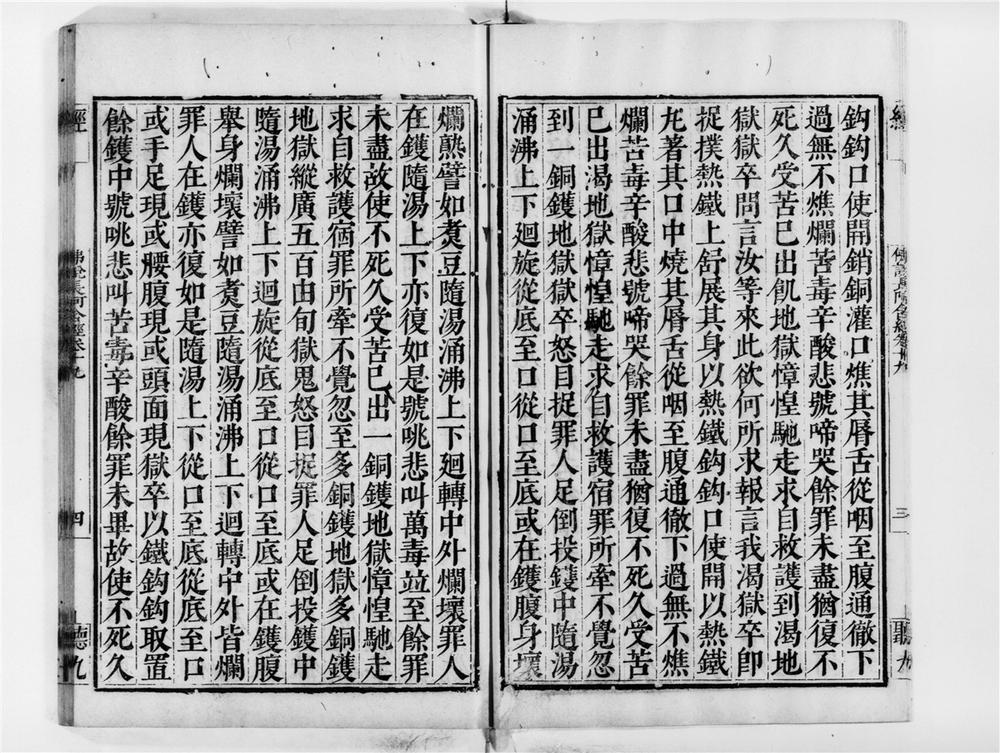 鈎鈎口使開銷銅灌口燋其脣舌從咽至腹通徹下
過無不燋爛苦毒辛酸悲號啼哭餘罪未盡猶復不
死久受苦已出飢地獄慞惶馳走求自救護到渴地
獄獄卒問言汝等來此欲何所求報言我渴獄卒即
捉撲熱鐵上舒展其身以熱鐵鈎鈎口使開以熱鐵
丸著其口中燒其脣舌從咽至腹通徹下過無不燋
爛苦毒辛酸悲號啼哭餘罪未盡猶復不死久受苦
已出渴地獄慞惶馳走求自救護宿罪所牽不覺忽
到一銅鑊地獄獄卒怒目捉罪人足倒投鑊中隨湯
涌沸上下廻旋從底至口從口至底或在鑊腹身壞
爛熟譬如煑豆隨湯涌沸上下廻轉中外爛壞罪人
在鑊隨湯上下亦復如是號咷悲叫萬毒竝至餘罪
未盡故使不死久受苦已出一銅鑊地獄慞惶馳走
求自救護宿罪所牽不覺忽至多銅鑊地獄多銅鑊
地獄縱廣五百由旬獄鬼怒目捉罪人足倒投鑊中
隨湯涌沸上下迴旋從底至口從口至底或在鑊腹
舉身爛壞譬如煑豆隨湯涌沸上下迴轉中外皆爛
罪人在鑊亦復如是隨湯上下從口至底從底至口
或手足現或腰腹現或頭面現獄卒以鐵鈎鈎取置
餘鑊中號咷悲叫苦毒辛酸餘罪未畢故使不死久
經
佛說長阿含經卷十九
四
聽九
三